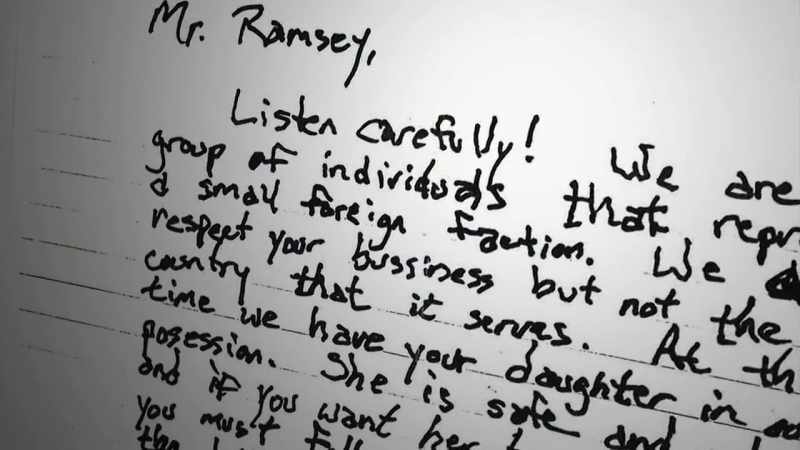 Mr. Ramsey,
Listen carefully! We are
group of individuals that repr
a small foreign faction. We
respect your bussiness but not the
country that it serves. At th
time we have your daughter in
posession. She is safe and
and if you want her
you must
the